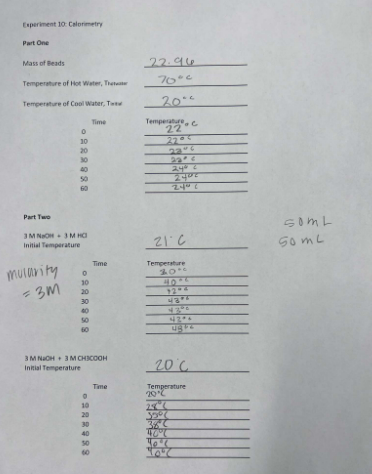 Experiment 10: Calorimetry
Part One
Mass of Beads 22.96
Temperature of Hot Water, 70°C
Temperature of Cool Water, 20°C
Time Temperature
0 22°C
10 22°C
20
30
40 24°C
50 24°C
60 24°C
Part Two
50mL
3 M NaOH + 3 M HCl
50mL
Initial Temperature 21°C
Time Temperature
molarity = 3M
0
10 40°C
20 42°C
30 43°C
40 43°C
50 43°C
60
3 M NaOH + 3 M CH3COOH
Initial Temperature 20°C
Time Temperature
0 20°C
10 28°C
20 35°C
30 38°C
40 40°C
50 40°C
60 40°C